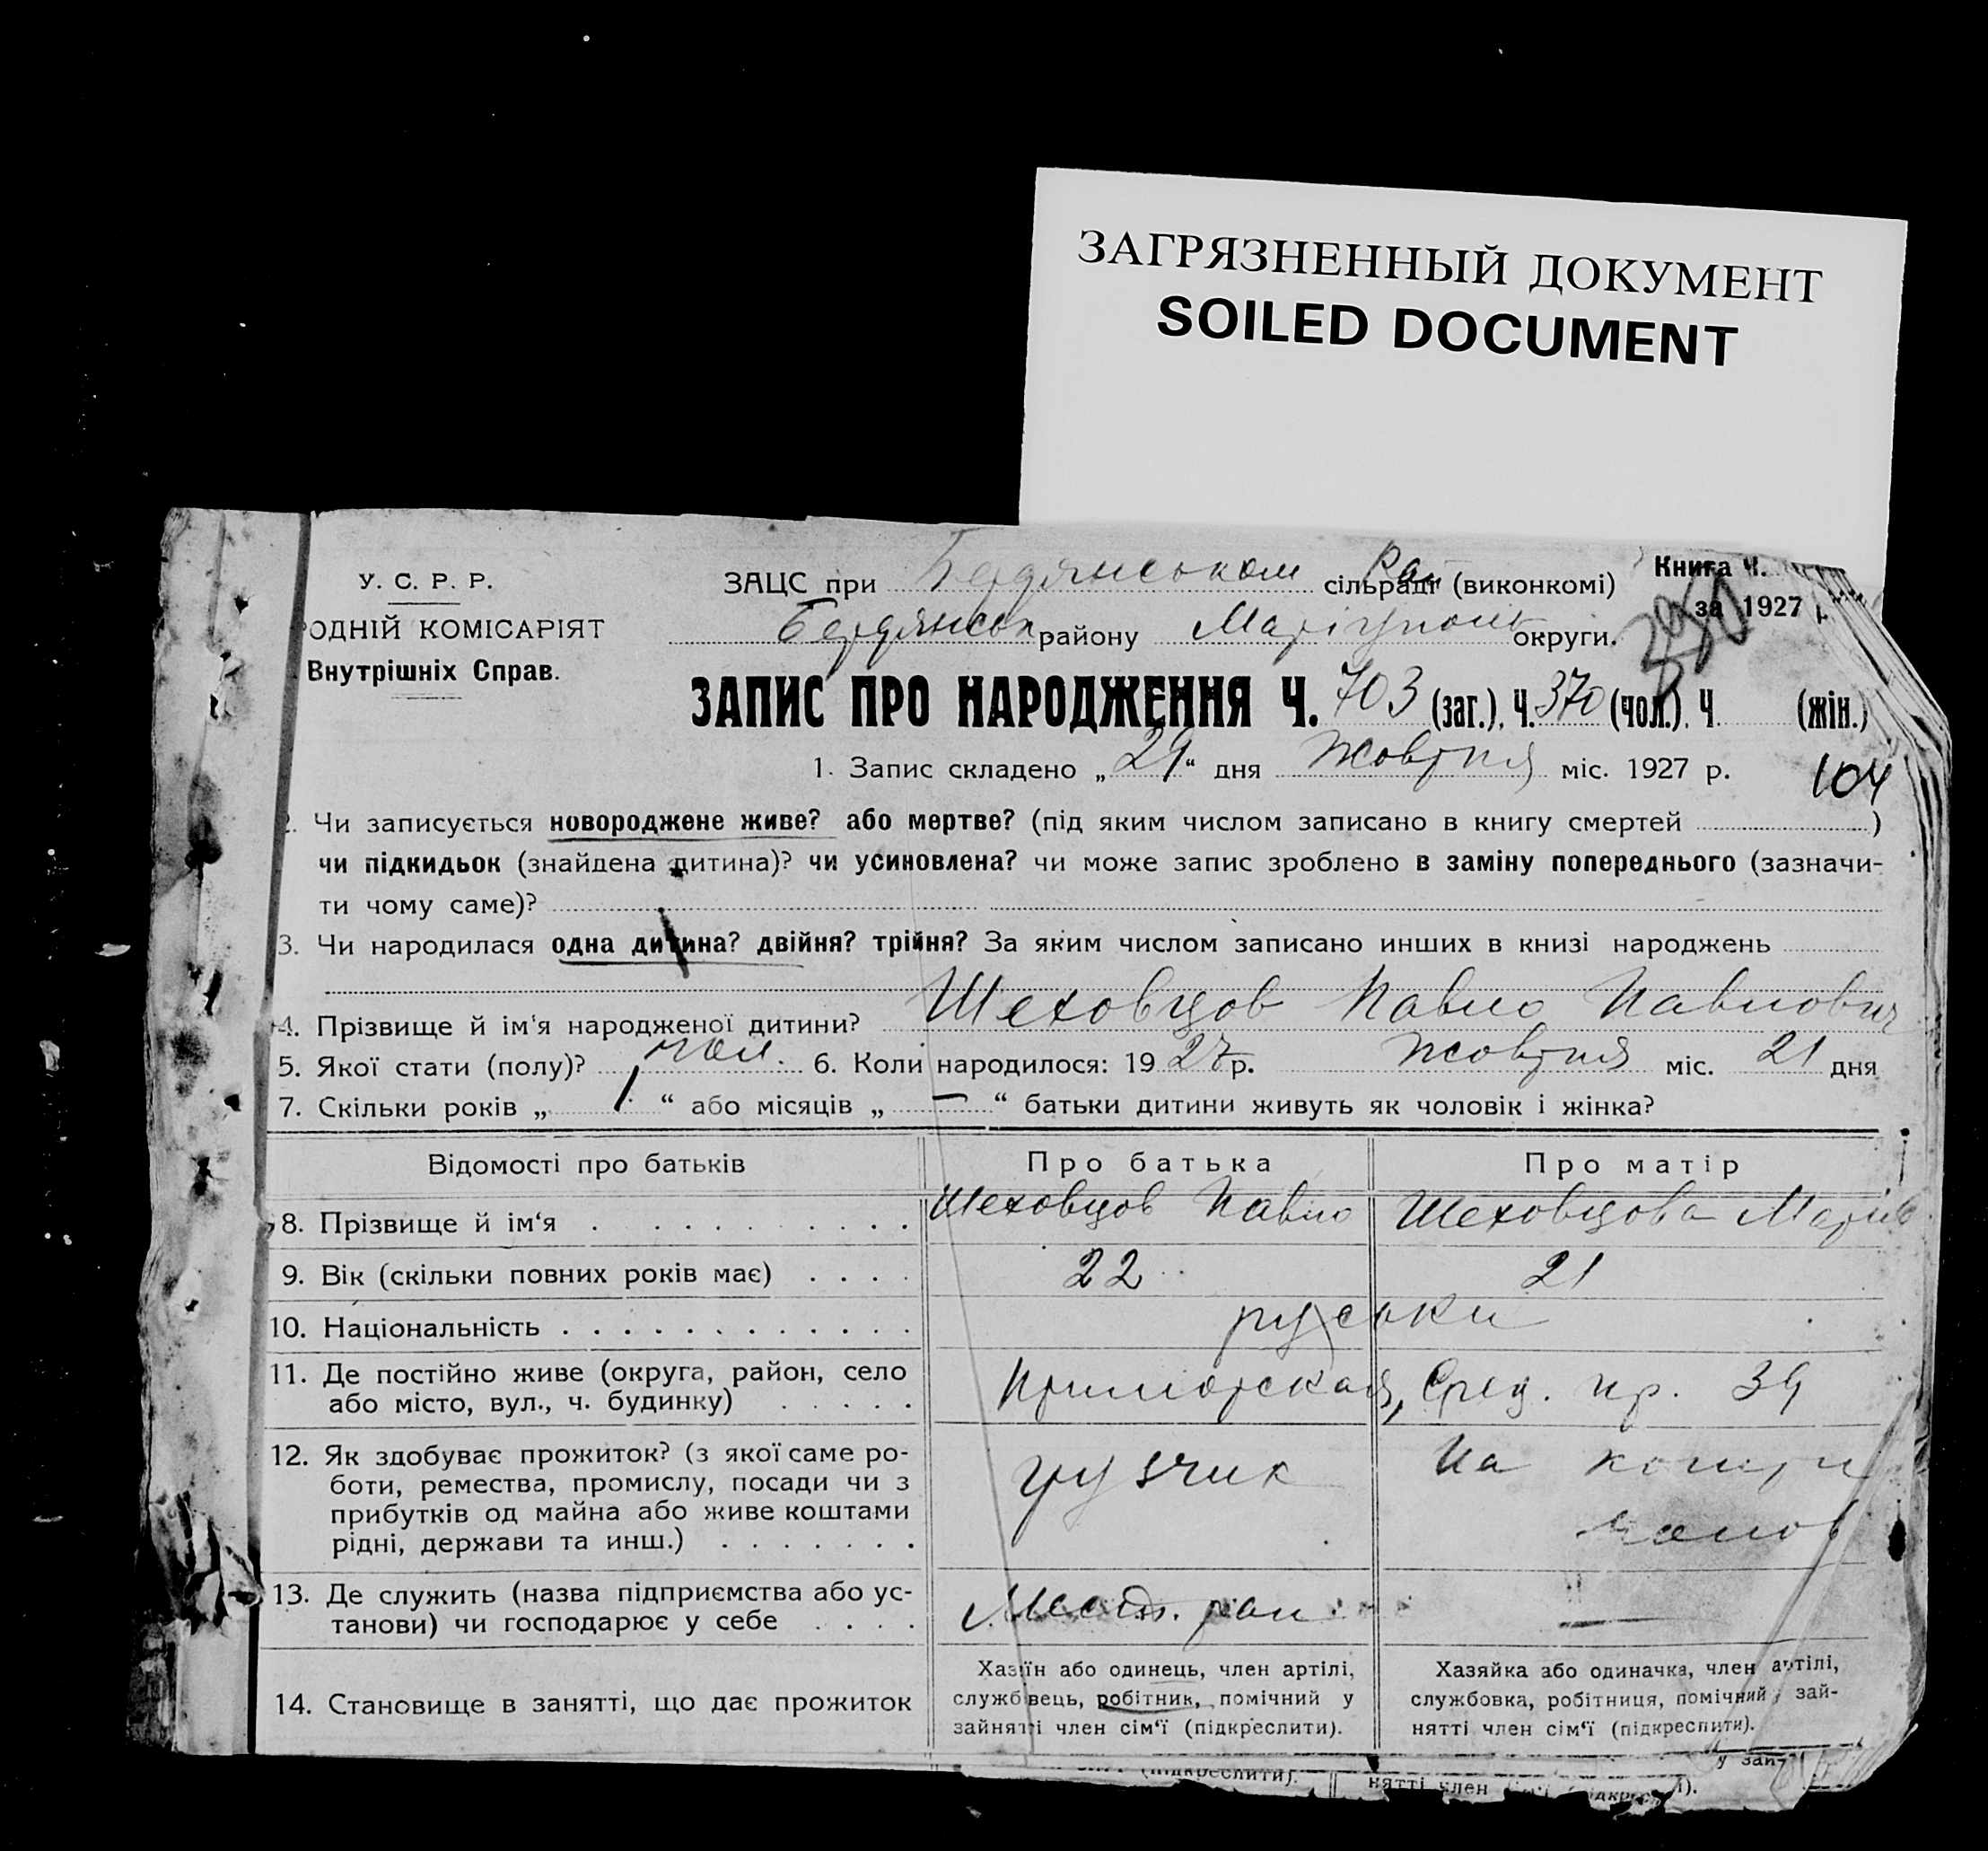 ЗАГРЯЗНЕННЫЙ ДОКУМЕНТ
SOILED DOCUMENT
У. С. Р. Р.
ОДНІЙ КОМІСАРІЯТ
Внутрішніх Справ.
ЗАЦС при Бердянськом Рай сільраді (виконкомі)
Книга Ч.
за 1927 р.
Бердянськ району Маріупольс округи.
ЗАПИС ПРО НАРОДЖЕННЯ Ч. 703 (заг.), Ч. 370 (чол.), Ч (жін.)
1. Запис складено „29“ дня жовтня міс. 1927 р.
104
2. Чи записується новороджене живе? або мертве? (під яким числом записано в книгу смертей )
чи підкидьок (знайдена дитина)? чи усиновлена? чи може запис зроблено в заміну попереднього (зазначи-
ти чому саме)?
3. Чи народилася одна дитина? двійня? трійня? За яким числом записано инших в книзі народжень
4. Прізвище й ім‘я народженої дитини? Шеховцов Павло Павлович
5. Якої стати (полу)? чол. 6. Коли народилося: 1927 р. жовтня міс. 21 дня
7. Скільки років „ 1 “ або місяців „ — “ батьки дитини живуть як чоловік і жінка?
Відомості про батьків Про батька Про матір
8. Прізвище й ім‘я Шеховцов Павло Шеховцова Марія
9. Вік (скільки повних років має) 22 21
10. Національність руськи
11. Де постійно живе (округа, район, село
або місто, вул., ч. будинку) Приморская, Сред. пр. 39
12. Як здобуває прожиток? (з якої саме ро-
боти, ремества, промислу, посади чи з
прибутків од майна або живе коштами
рідні, держави та инш.) грузчик На кошти
13. Де служить (назва підприємства або ус-
танови) чи господарює у себе —
14. Становище в занятті, що дає прожиток
Хазяїн або одинець, член артілі,
службовець, робітник, помічний у
зайнятті член сім‘ї (підкреслити).
Хазяйка або одиначка, член артілі,
службовка, робітниця, помічний у зай-
нятті член сім‘ї (підкреслити).
у зай-
(підкреслити).
нятті член